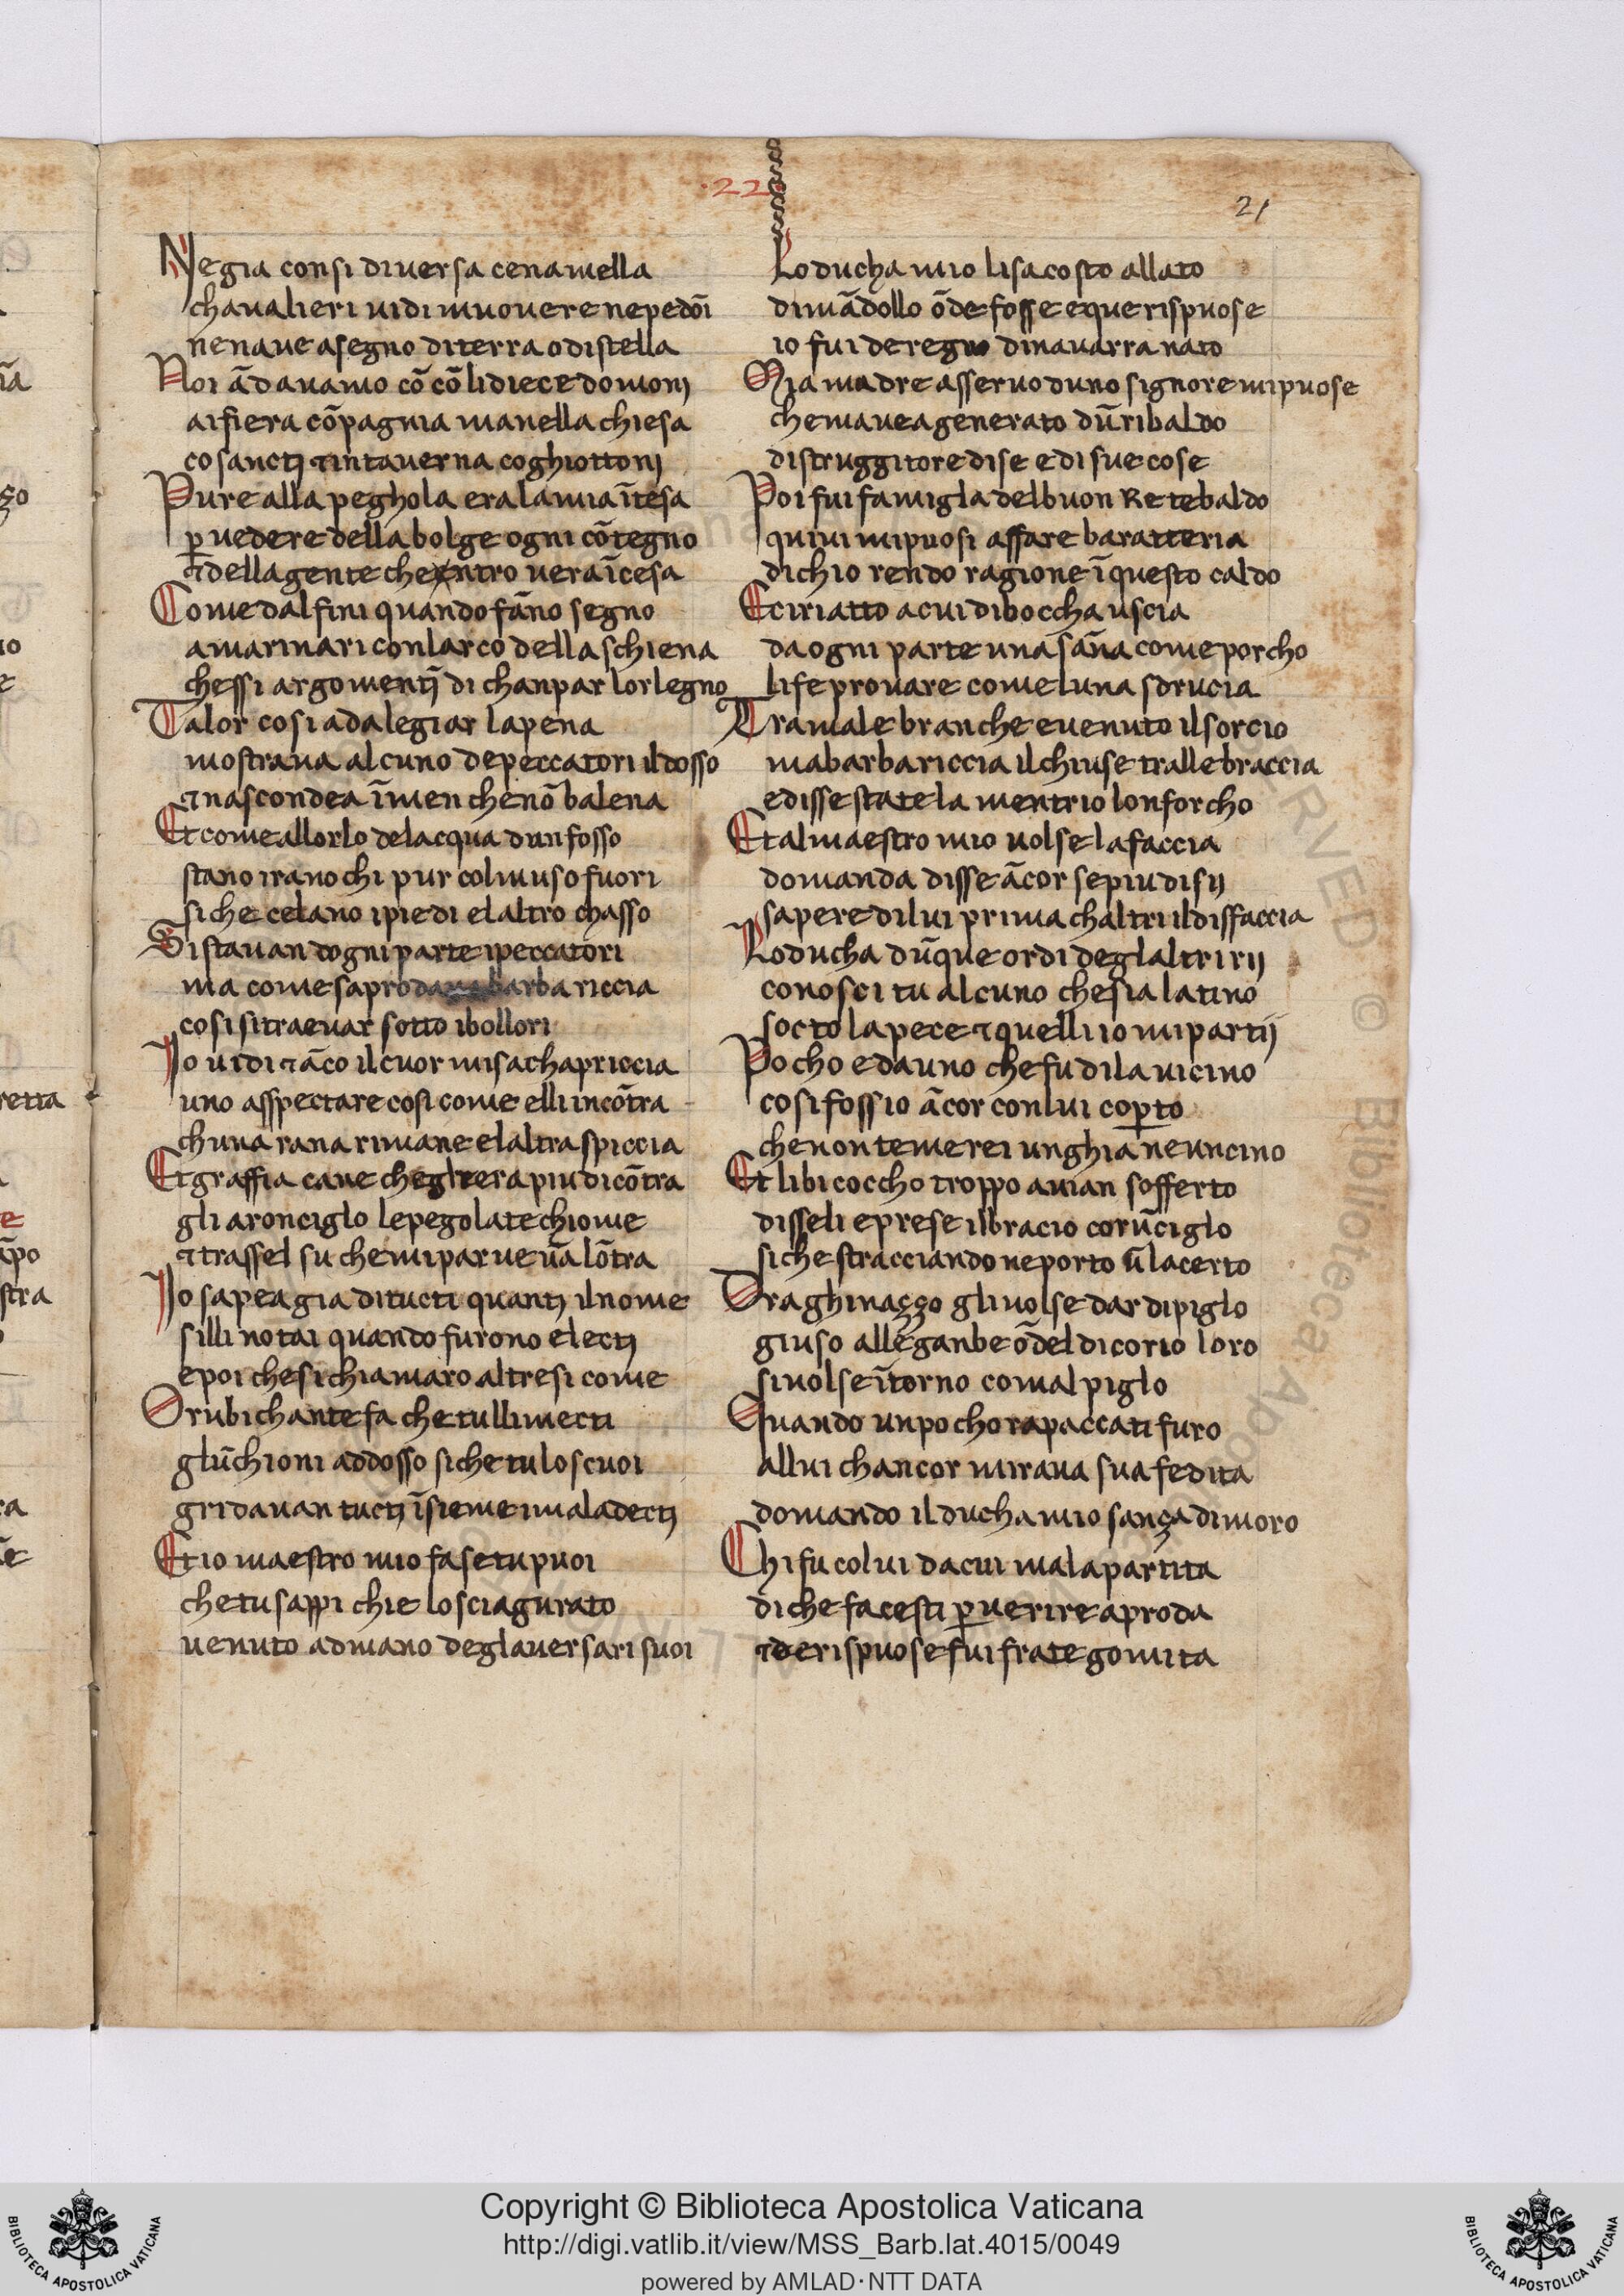 .22.
21
Ne gia consi diuersa cenamella
chaualieri uidi muouere ne pedōi
ne naue a segno di terra o di stella
Noi ādauamo cō cō li diece domonj
ai fiera cōpagnia ma nella chiesa
co sanctj ⁊ in tauerna co ghiottonj
Pure alla peghola era la mia ītesa
ꝑ uedere della bolge ogni cōtegno
⁊ della gente chentro uera īcesa
Come dalfini quando fāno segno
a marinari con larco della schiena
chessi argomentj di chanpar lor legno
Talor cosi ad alegiar la pena
mostraua alcuno de peccatori il dosso
⁊ nascondea ī men che nō balena
Et come allorlo de lacqua dun fosso
stano i ranochi pur col muso fuori
si che celano i piedi e laltro chasso
Si stauan dogni parte i peccatori
ma come saprodaua barbariccia
cosi si traeuar sotto i bollori
Io uidi ⁊ āco il cuor mi sachapriccia
uno asspectare cosi come elli incōtra
chuna rana rimane e laltra spiccia
Et graffia cane che gli era piu dicōtra
gli aronciglo le pegolate chiome
⁊ trassel su che mi parue ūa lōtra
Io sapea gia di tucti quantj il nome
si lli notai quando furono electj
e poi che si chiamaro altresi come
O rubichante fa che tu lli mecti
glūchioni addosso si che tu lo scuoi
gridauan tuctj īsieme i maladectj
Et io maestro mio fa se tu puoi
che tu sappi chi e lo sciagurato
uenuto ad mano degl auersari suoi
Lo ducha mio li sacosto allato
dimādollo ōde fosse e que rispuose
io fui de regno di nauarra nato
Mia madre asseruo duno signore mi puose
che mauea generato dū ribaldo
distruggitore di se e di sue cose
Poi fui famigla del buon Re tebaldo
quiui mi puosi affare baratteria
di chio rendo ragione ī questo caldo
E ciriatto a cui di boccha uscia
da ogni parte una sāna come porcho
li fe prouare come luna sdrucia
Tra male branche e uenuto il sorcio
ma barbariccia il chiuse tralle braccia
e disse state la mentrio lonforcho
Et al maestro mio uolse la faccia
domanda disse ācor se piu disij
sapere di lui prima chaltri il disfaccia
Lo ducha dūque or di degl altri rij
conosci tu alcuno che sia latino
socto la pece ⁊ quelli io mi partij
Pocho e da uno che fu di la uicino
cosi fossio ācor con lui coꝑto
che non temerei unghia ne uncino
Et libicoccho troppo auian sofferto
disseli e prese il bracio co rūciglo
si che stracciando ne porto ū lacerto
Draghinaçço gli uolse dar di piglo
giuso alle ganbe ōdel dicorio loro
si uolse ītorno co mal piglo
Quando un pocho rapaccati furo
allui chancor miraua sua fedita
domando il ducha mio sança dimoro
Chi fu colui da cui mala partita
di che facesti ꝑ uenire a proda
⁊ de rispuose fui frate gomita
Copyright © Biblioteca Apostolica Vaticana
http://digi.vatlib.it/view/MSS_Barb.lat.4015/0049
powered by AMLAD·NTT DATA
BIBLIOTECA APOSTOLICA VATICANA
BIBLIOTECA APOSTOLICA VATICANA